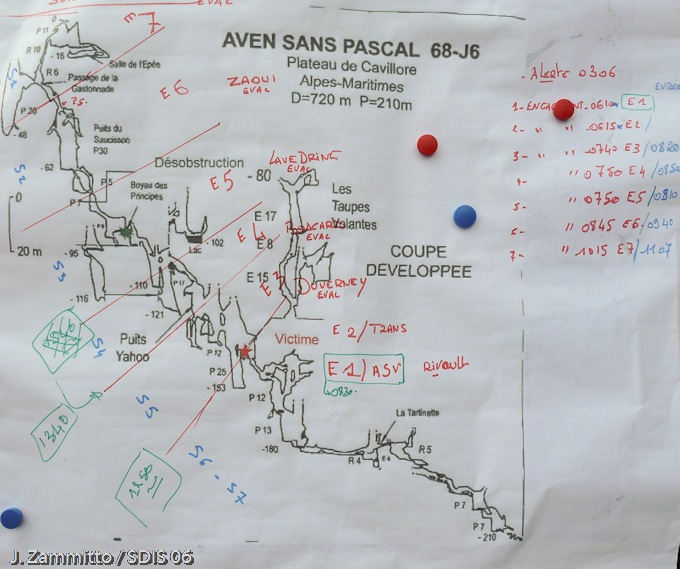 EVAC
E 7
AVEN SANS PASCAL 68-J6
Plateau de Cavillore
Alpes-Maritimes
D=720 m P=210m
P 11
R 10
- 16
Salle de l'Epée
R 6
Passage de la
Gastonnade
P 20
- 48
E 6
ZAOUI
EVAC
Puits du
Saucisson
P30
- 62
P 5
Désobstruction
Boyau des
Principes
E 5
LAVEDRINE
EVAC
- 80
Les
Taupes
Volantes
E 17
E 8
E 15
EVAC
DUVERNEY
EVAC
COUPE
DEVELOPPEE
0
20 m
- 95
Lac
- 102
- 110
- 116
- 121
P 17
Puits
Yahoo
P 12
P 25
- 153
Victime
E 2 / TRANS
E 1 / ASV
Rivault
0830
P 12
P 13
-180
La Tartinette
R 4
E 4
R 5
P 7
P 7
- 210
S2
S3
S4
S5
S6 - S7
1340
- Alerte 0306
ENTRÉE
1- ENGAGEMENT 0610 E1
2- " " 0615 E2/
3- " " 0740 E3/0820
4- " 0750 E4/0850
5- " 0750 E5/0810
6- " 0845 E6/0940
7- " 1015 E7/1107
J. Zammitto / SDIS 06